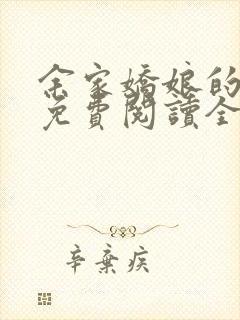 余家嬌娘的
免費閱讀全
辛棄疾